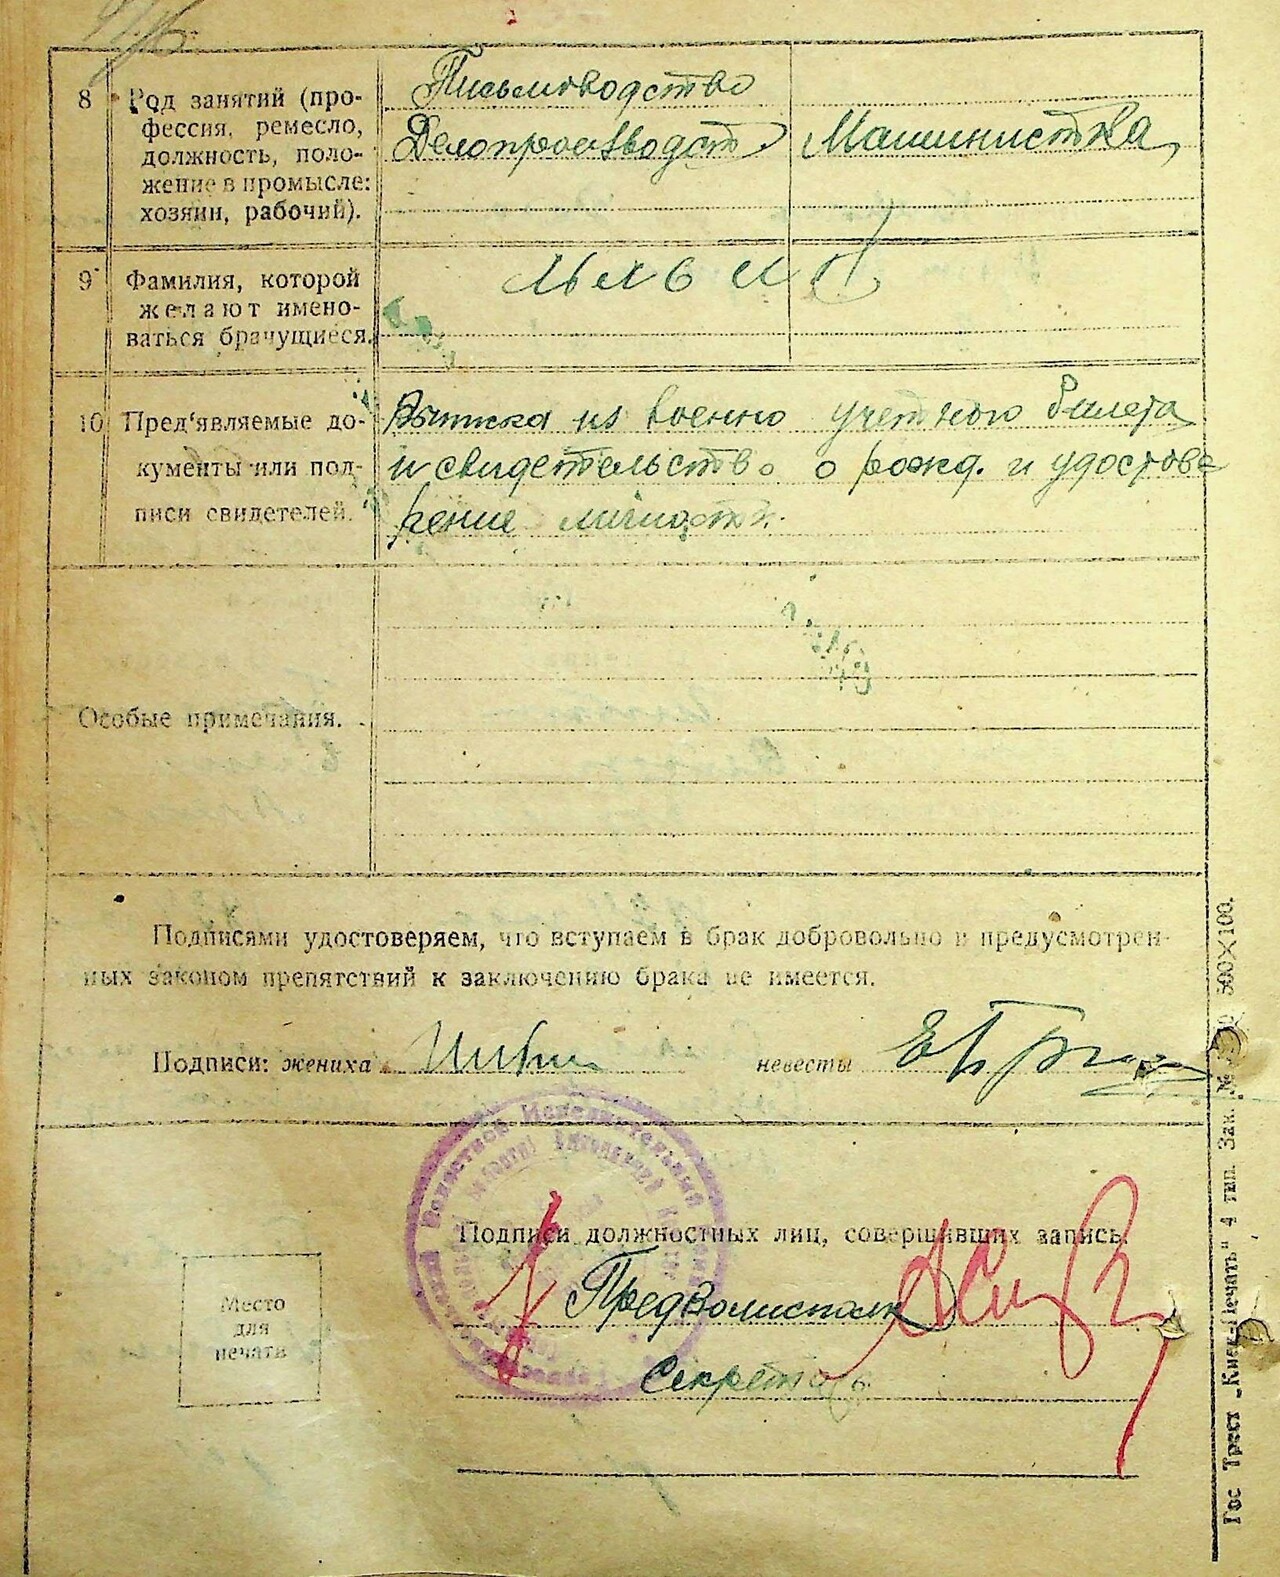 8 Род занятий (про-
фессия, ремесло,
должность, поло-
жение в промысле:
хозяин, рабочий).
Письмоводство
Делопроизводст.
Машинистка
9 Фамилия, которой
желают имено-
ваться брачущиеся.
10 Пред'являемые до-
кументы или под-
писи свидетелей.
из военно учетного билета
и свидетельство о рожд. и удостове
рение личности.
Особые примечания.
Подписями удостоверяем, что вступаем в брак добровольно и предусмотрен-
ных законом препятствий к заключению брака не имеется.
Подписи: жениха
невесты
Исполнительный
Подписи должностных лиц, совершивших запись.
Предволисполк
Секретарь
Место
для
печати
Гос Трест „Киев-Печать" 4 тип. Зак. № 500×100.